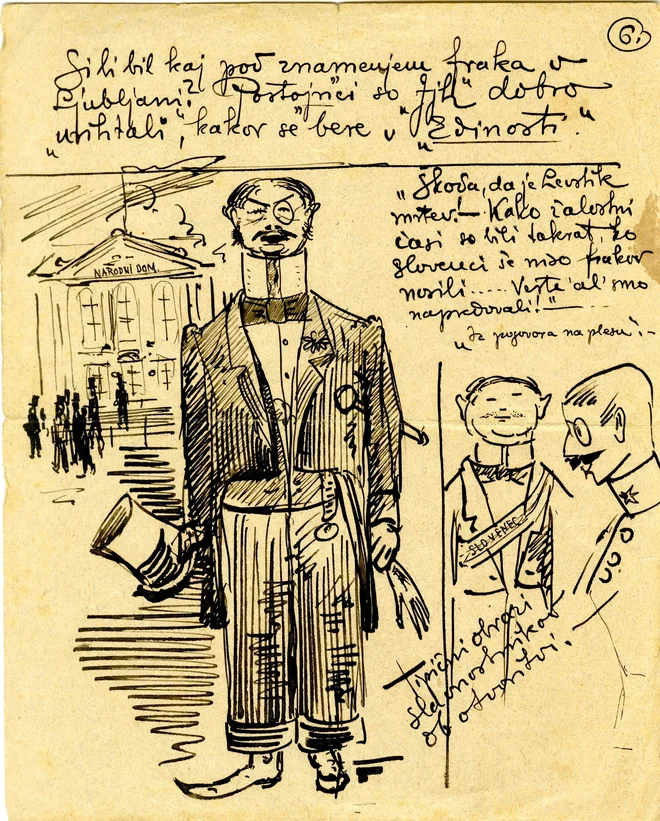 6.
Si li bil kaj pod znamenjem fraka v
Ljubljani? Postojnčci so "jih" dobro
"nšihtali", kakor se bere v "Edinosti."
"Škoda, da je Levstik
mrtev! - Kako žalostni
časi so bili takrat, ko
slovenci še niso frakov
nosili ..... Veste al' smo
napredovali!" -
"Iz pogovora na plesu": -
NARODNI DOM.
SLOVENEC
Tipični obrazi
slavnostnikov
ob otvoritvi. -